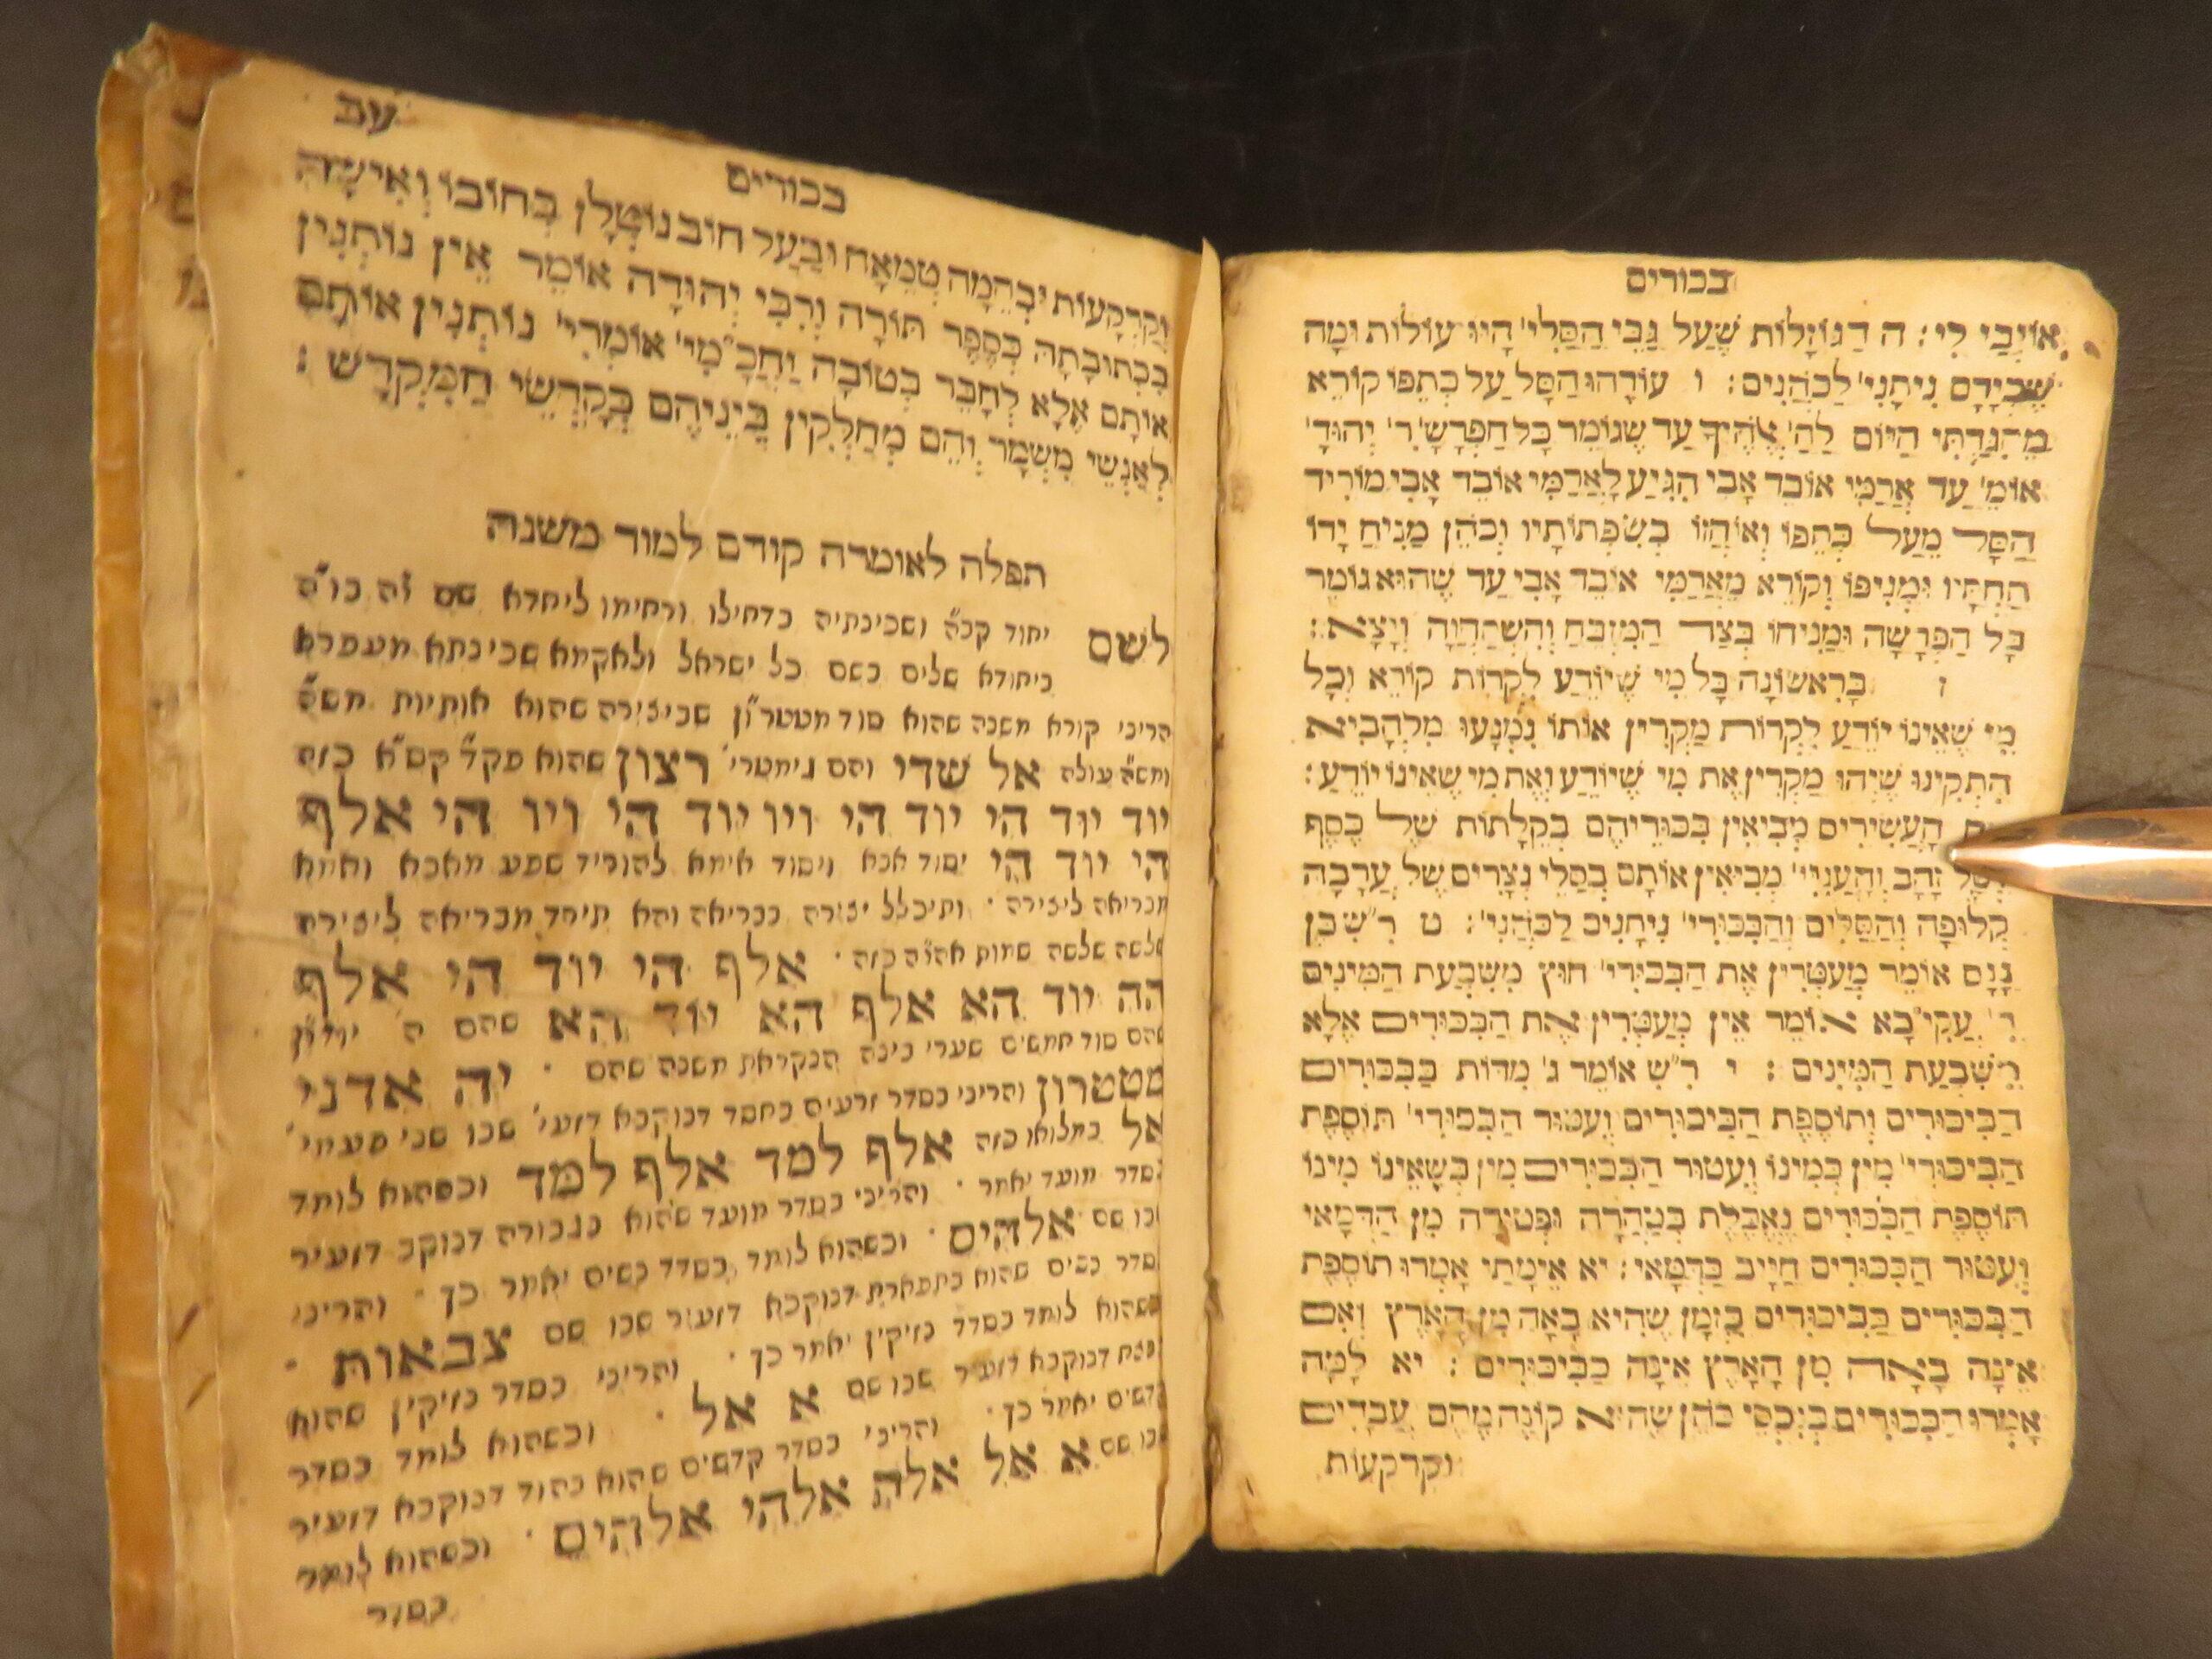 בכורים
אוֹיְבַי לִי: ה הַגּוֹזָלוֹת שֶׁעַל גַּבֵּי הַסַּלִּי' הָיוּ עוֹלוֹת וּמָה
שֶׁבְּיָדָם נִיתָנִי' לַכֹּהֲנִים: ו עוֹדֵהוּ הַסַּל עַל כְּתֵפוֹ קוֹרֵא
מֵהִגַּדְתִּי הַיּוֹם לַה' אֱלֹהֶיךָ עַד שֶׁגּוֹמֵר כָּל הַפָּרָשָׁ' ר' יְהוּדָ'
אוֹמֵ' עַד אֲרַמִּי אוֹבֵד אָבִי הִגִּיעַ לַאֲרַמִּי אוֹבֵד אָבִי מוֹרִיד
הַסַּל מֵעַל כְּתֵפוֹ וְאוֹחֲזוֹ בְשִׂפְתוֹתָיו וְכֹהֵן מַנִּיחַ יָדוֹ
תַּחְתָּיו וּמְנִיפוֹ וְקוֹרֵא מֵאֲרַמִּי אוֹבֵד אָבִי עַד שֶׁהוּא גוֹמֵר
כָּל הַפָּרָשָׁה וּמַנִּיחוֹ בְּצַד הַמִּזְבֵּחַ וְהִשְׁתַּחֲוָה וְיָצָא:
ז בָּרִאשׁוֹנָה כָּל מִי שֶׁיּוֹדֵעַ לִקְרוֹת קוֹרֵא וְכָל
מִי שֶׁאֵינוֹ יוֹדֵעַ לִקְרוֹת מַקְרִין אוֹתוֹ נִמְנָעוּ מִלְּהָבִיא
הִתְקִינוּ שֶׁיְּהוּ מַקְרִין אֶת מִי שֶׁיּוֹדֵעַ וְאֶת מִי שֶׁאֵינוֹ יוֹדֵעַ:
הָעֲשִׁירִים מְבִיאִין בִּכּוּרֵיהֶם בִּקְלָתוֹת שֶׁל כֶּסֶף
זָהָב וְהָעֲנִיִּי' מְבִיאִין אוֹתָם בְּסַלֵּי נְצָרִים שֶׁל עֲרָבָה
קְלוּפָה וְהַסַּלִּים וְהַבִּכּוּרִי' נִיתָנִים לַכֹּהֲנִי': ט ר"ש בֶּן
נַנָּס אוֹמֵר מְעַטְּרִין אֶת הַבִּכּוּרִי' חוּץ מִשִּׁבְעַת הַמִּינִים
ר' עֲקִי"בָא אוֹמֵר אֵין מְעַטְּרִין אֶת הַבִּכּוּרִים אֶלָּא
מִשִּׁבְעַת הַמִּינִים: י ר"ש אוֹמֵר ג' מִדּוֹת בַּבִּכּוּרִים
הַבִּיכּוּרִים וְתוֹסֶפֶת הַבִּיכּוּרִים וְעִטּוּר הַבִּכּוּרִי' תּוֹסֶפֶת
הַבִּיכּוּרִי' מִין בְּמִינוֹ וְעִטּוּר הַבִּכּוּרִים מִין בְּשֶׁאֵינוֹ מִינוֹ
תּוֹסֶפֶת הַבִּכּוּרִים נֶאֱכֶלֶת בְּטָהֳרָה וּפְטִירָה מִן הַדְּמָאי
וְעִטּוּר הַבִּכּוּרִים חַיָּיב בַּדְּמָאי: יא אֵימָתַי אָמְרוּ תּוֹסֶפֶת
הַבִּכּוּרִים כַּבִּיכּוּרִים בִּזְמַן שֶׁהִיא בָאָה מִן הָאָרֶץ וְאִם
אֵינָה בָּאָה מִן הָאָרֶץ אֵינָה כַבִּיכּוּרִים: יא לָמָּה
אָמְרוּ הַבִּכּוּרִים כְּנִכְסֵי כֹהֵן שֶׁהוּא קוֹנֶה מֵהֶם עֲבָדִים
וקרקעות
עב
בכורים
וְקַרְקָעוֹת וּבְהֵמָה טְמֵאָה וּבַעַל חוֹב נוֹטְלָן בְּחוֹבוֹ וְאִישָׁה
בִּכְתוּבָתָהּ כְּסֵפֶר תּוֹרָה וְרִבִּי יְהוּדָה אוֹמֵר אֵין נוֹתְנִין
אוֹתָם אֶלָּא לְחָבֵר בְּטוֹבָה וַחֲכָ"מִי' אוֹמְרִי' נוֹתְנִין אוֹתָם
לְאַנְשֵׁי מִשְׁמָר וְהֵם מְחַלְּקִין בֵּינֵיהֶם בְּקָדְשֵׁי הַמִּקְדָּשׁ:
תפלה לאומרה קודם למוד משנה
לשם יחוד קבה ושכינתיה בדחילו ורחימו ליחדא שם
ביחודא שלים בשם כל ישראל ולאקמא שכינתא מעפרא
הריני קורא משנה שהוא סוד מטטר"ון שביצירה שהוא אותיות
עולה אל שדי והם גימטרי' רצון שהוא קס"א כזה
יוד יוד הי יוד הי ויו יוד הי ויו הי אלף
הי יוד הי יסוד אבא ויסוד אימא להוריד שפע מאבא ואמא
מבריאה ליצירה. ותיכלל יצירה בבריאה והא תיחד מבריאה ליצירה
שלשה שלשה שמות כזה. אלף הי יוד הי אלף
הה יוד הא אלף הא יוד הא שהם
שהם סוד חמשים שערי בינה הנקראת משנה שהם. יה אדני
מטטרון והריני בסדר זרעים בחסד דנוקבא שבו
אל במלואו כזה אלף למד אלף למד וכשהוא לומד
בסדר מועד יאמר. והריני בסדר מועד שהוא בגבורה דנוקב דזעיר
שבו שם אלהים. וכשהוא לומד בסדר נשים יאמר כך. והריני
בסדר נשים שהוא בתפארת דנוקבא דזעיר שבו שם צבאות.
וכשהוא לומד בסדר נזיקין יאמר כך. והריני בסדר נזיקין שהוא
דנוקבא דזעיר שבו שם א אל. וכשהוא לומד בסדר
קדשים יאמר כך. והריני בסדר קדשים שהוא בהוד דנוקבא דזעיר
שבו שם א אל אלה אלהי אלהים. וכשהוא לומד
בסדר